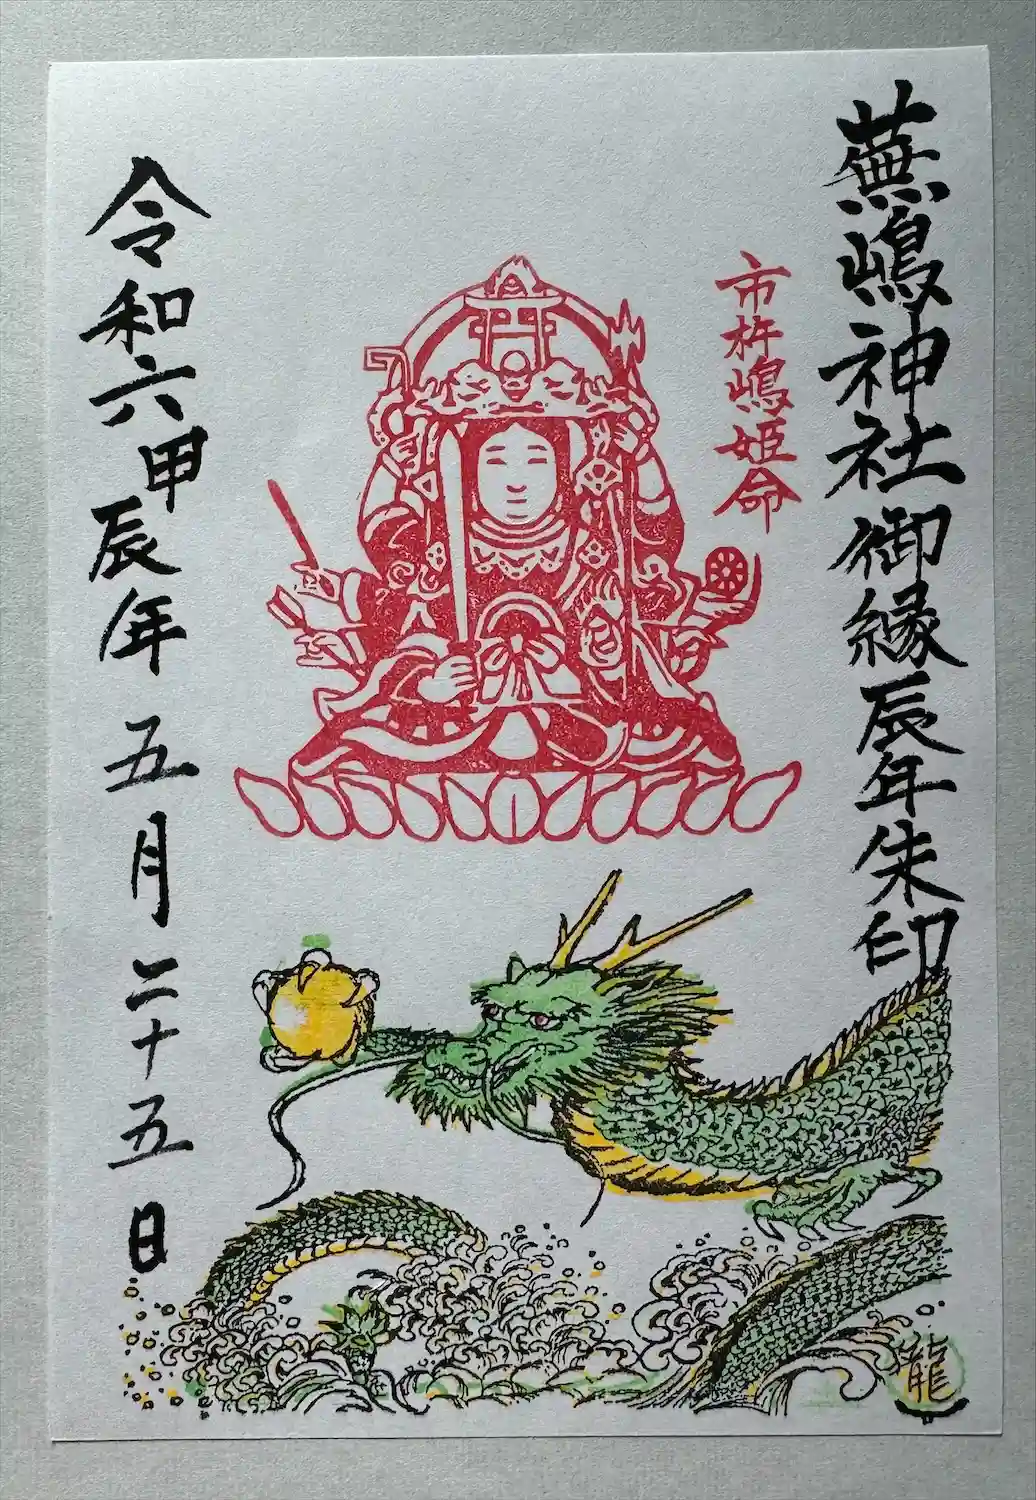 蕪嶋神社御縁辰年朱印
市杵嶋姫命
令和六甲辰年五月二十五日
龍